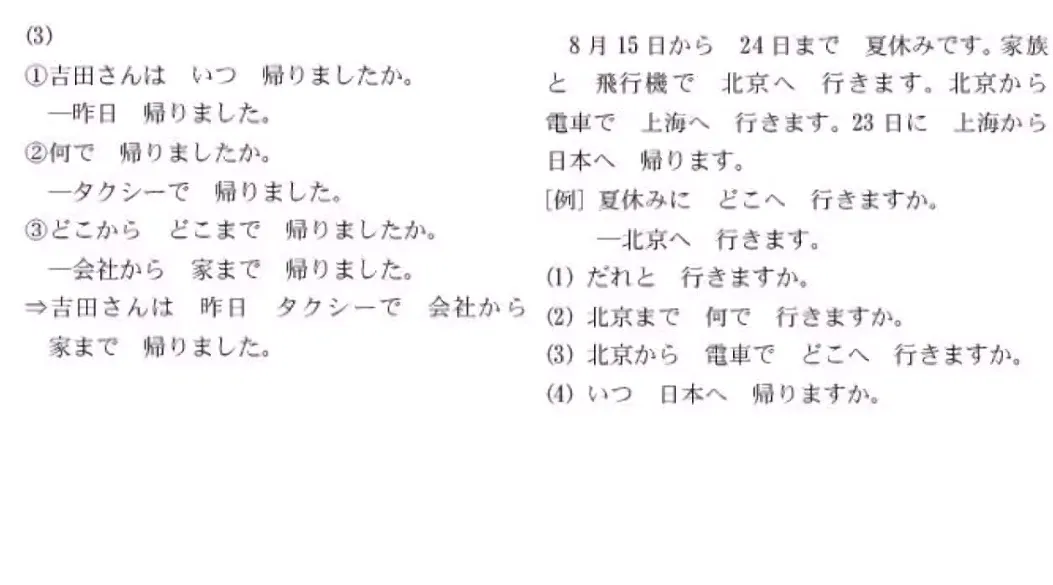 (3)
①吉田さんは　いつ　帰りましたか。
―昨日　帰りました。
②何で　帰りましたか。
―タクシーで　帰りました。
③どこから　どこまで　帰りましたか。
―会社から　家まで　帰りました。
⇒吉田さんは　昨日　タクシーで　会社から
家まで　帰りました。
8月15日から　24日まで　夏休みです。家族
と　飛行機で　北京へ　行きます。北京から
電車で　上海へ　行きます。23日に　上海から
日本へ　帰ります。
[例] 夏休みに　どこへ　行きますか。
―北京へ　行きます。
(1) だれと　行きますか。
(2) 北京まで　何で　行きますか。
(3) 北京から　電車で　どこへ　行きますか。
(4) いつ　日本へ　帰りますか。